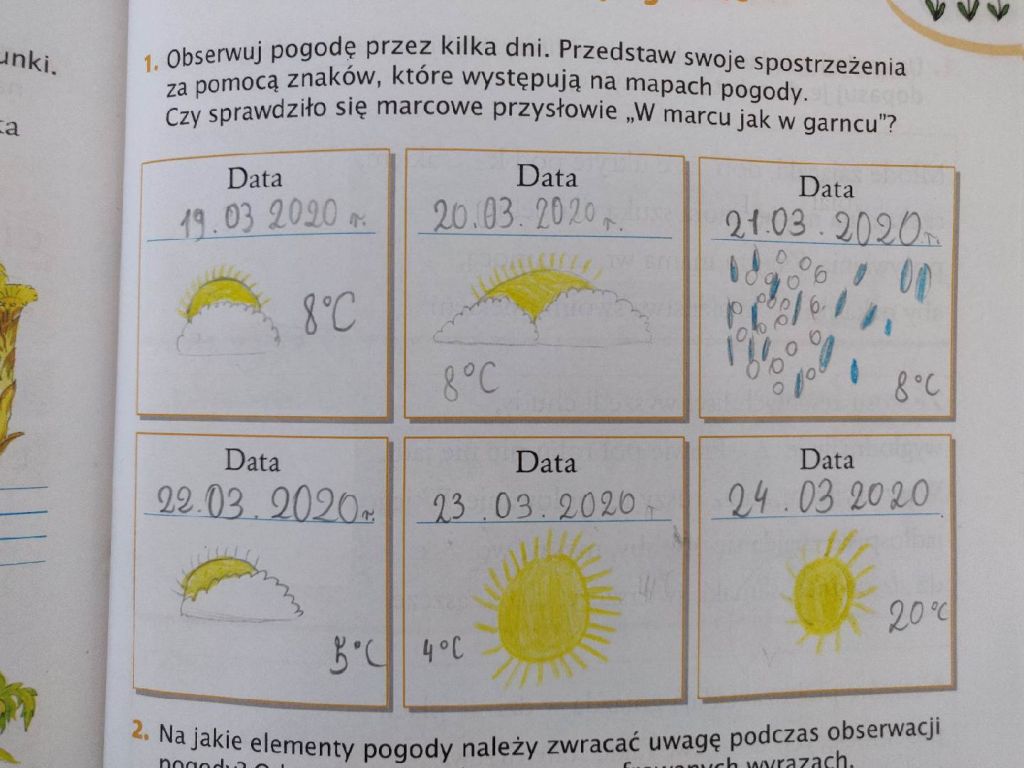 unki.
1. Obserwuj pogodę przez kilka dni. Przedstaw swoje spostrzeżenia
za pomocą znaków, które występują na mapach pogody.
Czy sprawdziło się marcowe przysłowie „W marcu jak w garncu"?
Data
19.03 2020 r.
8°C
Data
20.03.2020 r.
8°C
Data
21.03.2020 r.
8°C
Data
22.03.2020 r.
5°C
Data
23.03.2020 r
4°C
Data
24.03 2020
20°C
2. Na jakie elementy pogody należy zwracać uwagę podczas obserwacji
wyrazach.